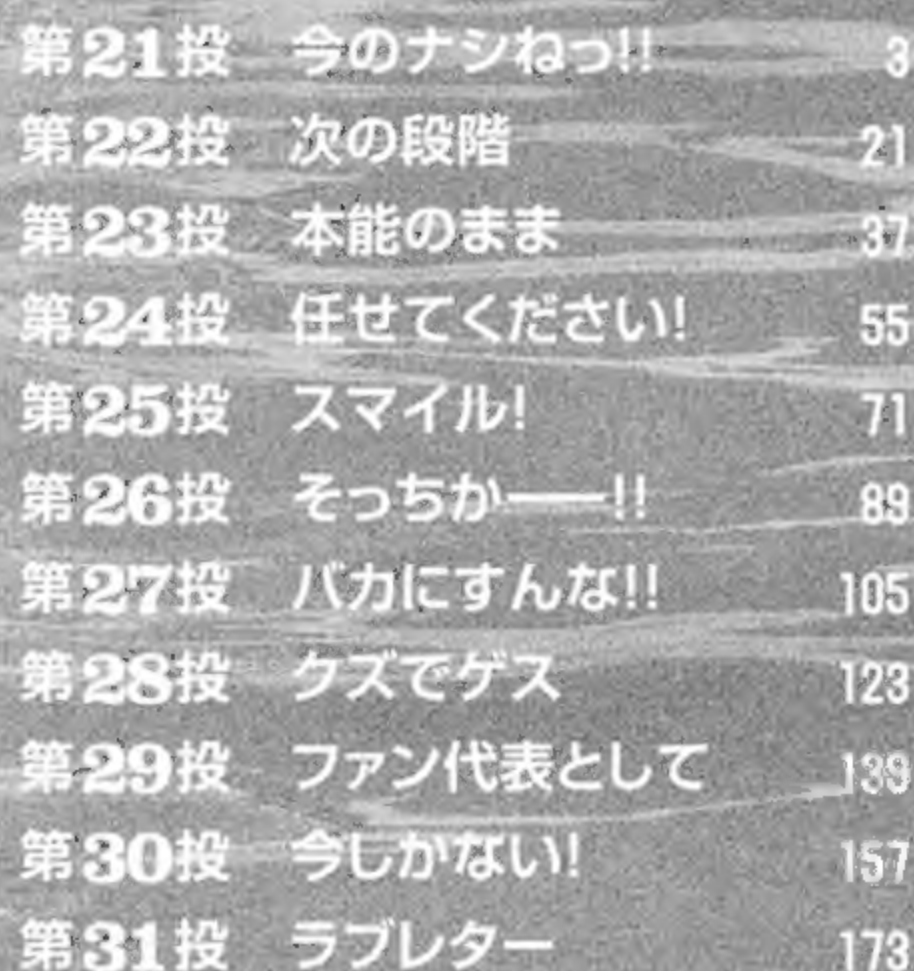 第21投 今のナシねっ!! 3
第22投 次の段階 21
第23投 本能のまま 37
第24投 任せてください! 55
第25投 スマイル! 71
第26投 そっちか――!! 89
第27投 バカにすんな!! 105
第28投 クズでゲス 123
第29投 ファン代表として 139
第30投 今しかない! 157
第31投 ラブレター 173